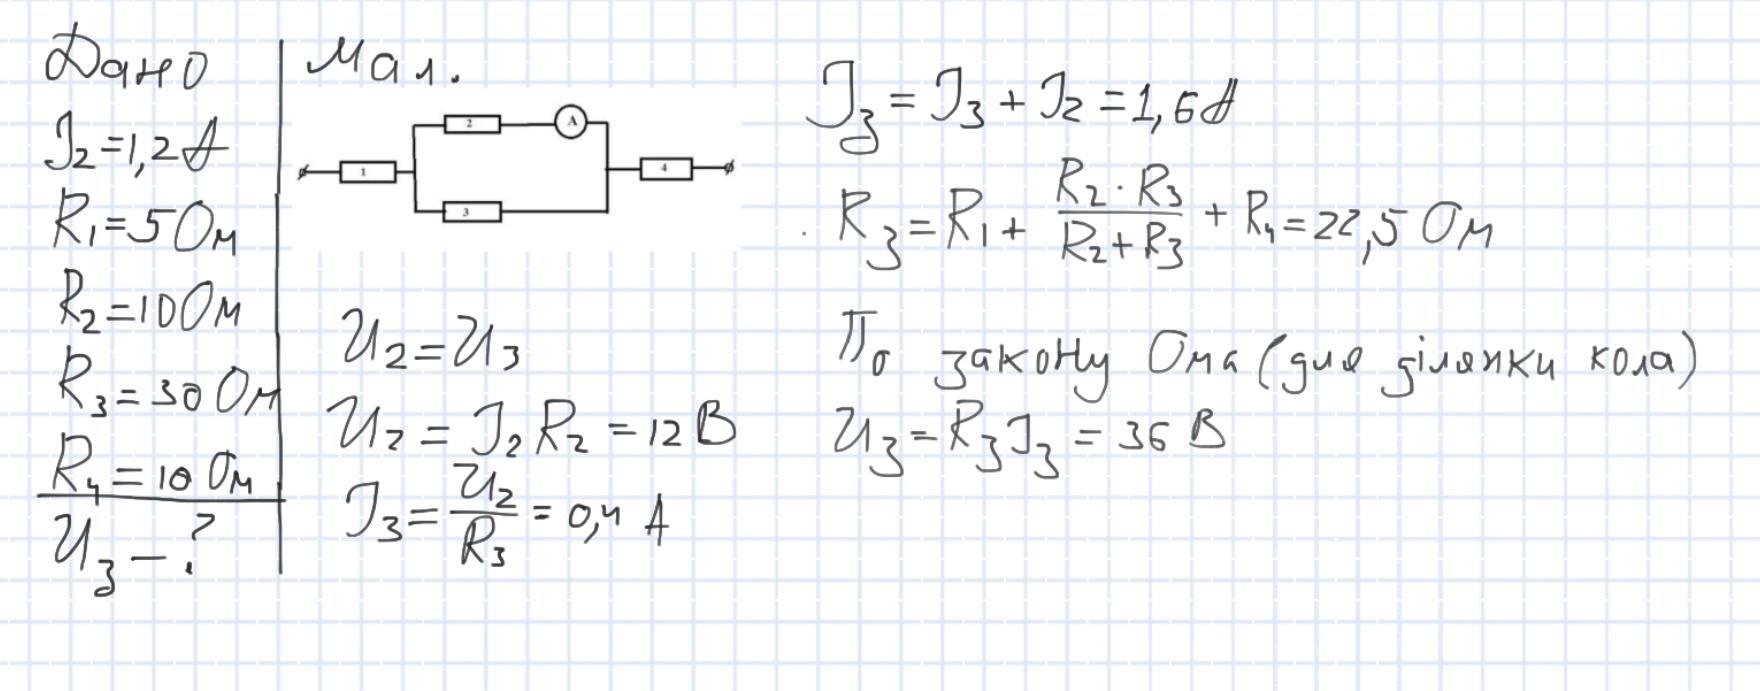 Дано
I₂=1,2А
R₁=5 Ом
R₂=10 Ом
R₃=30 Ом
R₄=10 Ом
Uз-?
Мал.
2
A
1
4
3
U₂=U₃
U₂=I₂R₂=12 В
I₃=U₂/R₃=0,4 А
Iз=I₃+I₂=1,6А
Rз=R₁+(R₂·R₃)/(R₂+R₃)+R₄=22,5 Ом
По закону Ома (для ділянки кола)
Uз=RзIз=36 В